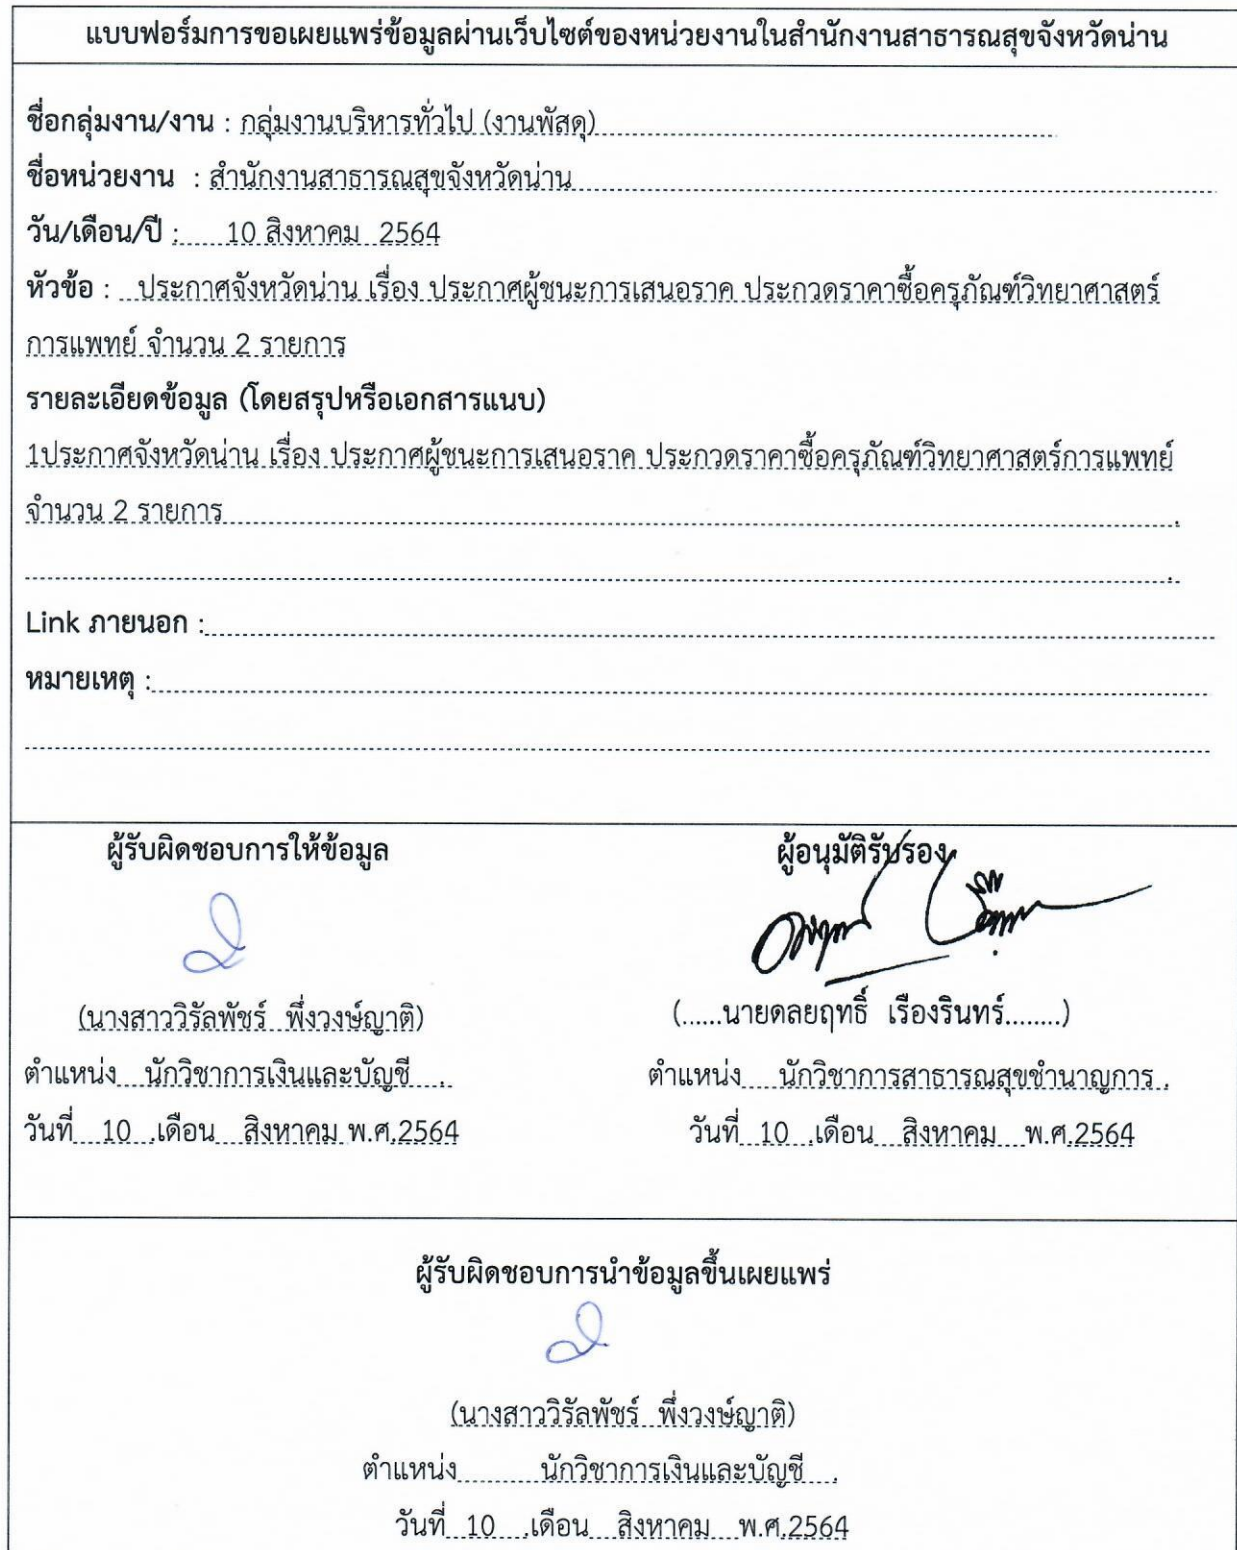 แบบฟอร์มการขอเผยแพร่ข้อมูลผ่านเว็บไซต์ของหน่วยงานในสำนักงานสาธารณสุขจังหวัดน่าน
ชื่อกลุ่มงาน/งาน : กลุ่มงานบริหารทั่วไป (งานพัสดุ)
ชื่อหน่วยงาน : สำนักงานสาธารณสุขจังหวัดน่าน
วัน/เดือน/ปี : 10 สิงหาคม 2564
หัวข้อ : ประกาศจังหวัดน่าน เรื่อง ประกาศผู้ชนะการเสนอราค ประกวดราคาซื้อครุภัณฑ์วิทยาศาสตร์
การแพทย์ จำนวน 2 รายการ
รายละเอียดข้อมูล (โดยสรุปหรือเอกสารแนบ)
1ประกาศจังหวัดน่าน เรื่อง ประกาศผู้ชนะการเสนอราค ประกวดราคาซื้อครุภัณฑ์วิทยาศาสตร์การแพทย์
จำนวน 2 รายการ
Link ภายนอก :
หมายเหตุ :
ผู้รับผิดชอบการให้ข้อมูล
(นางสาววิรัลพัชร์ พึ่งวงษ์ญาติ)
ตำแหน่ง นักวิชาการเงินและบัญชี
วันที่ 10 .เดือน สิงหาคม พ.ศ.2564
ผู้อนุมัติรับรอง
(......นายดลยฤทธิ์ เรืองรินทร์........)
ตำแหน่ง นักวิชาการสาธารณสุขชำนาญการ .
วันที่ 10 .เดือน สิงหาคม พ.ศ.2564
ผู้รับผิดชอบการนำข้อมูลขึ้นเผยแพร่
(นางสาววิรัลพัชร์ พึ่งวงษ์ญาติ)
ตำแหน่ง นักวิชาการเงินและบัญชี
วันที่ 10 .เดือน สิงหาคม พ.ศ.2564